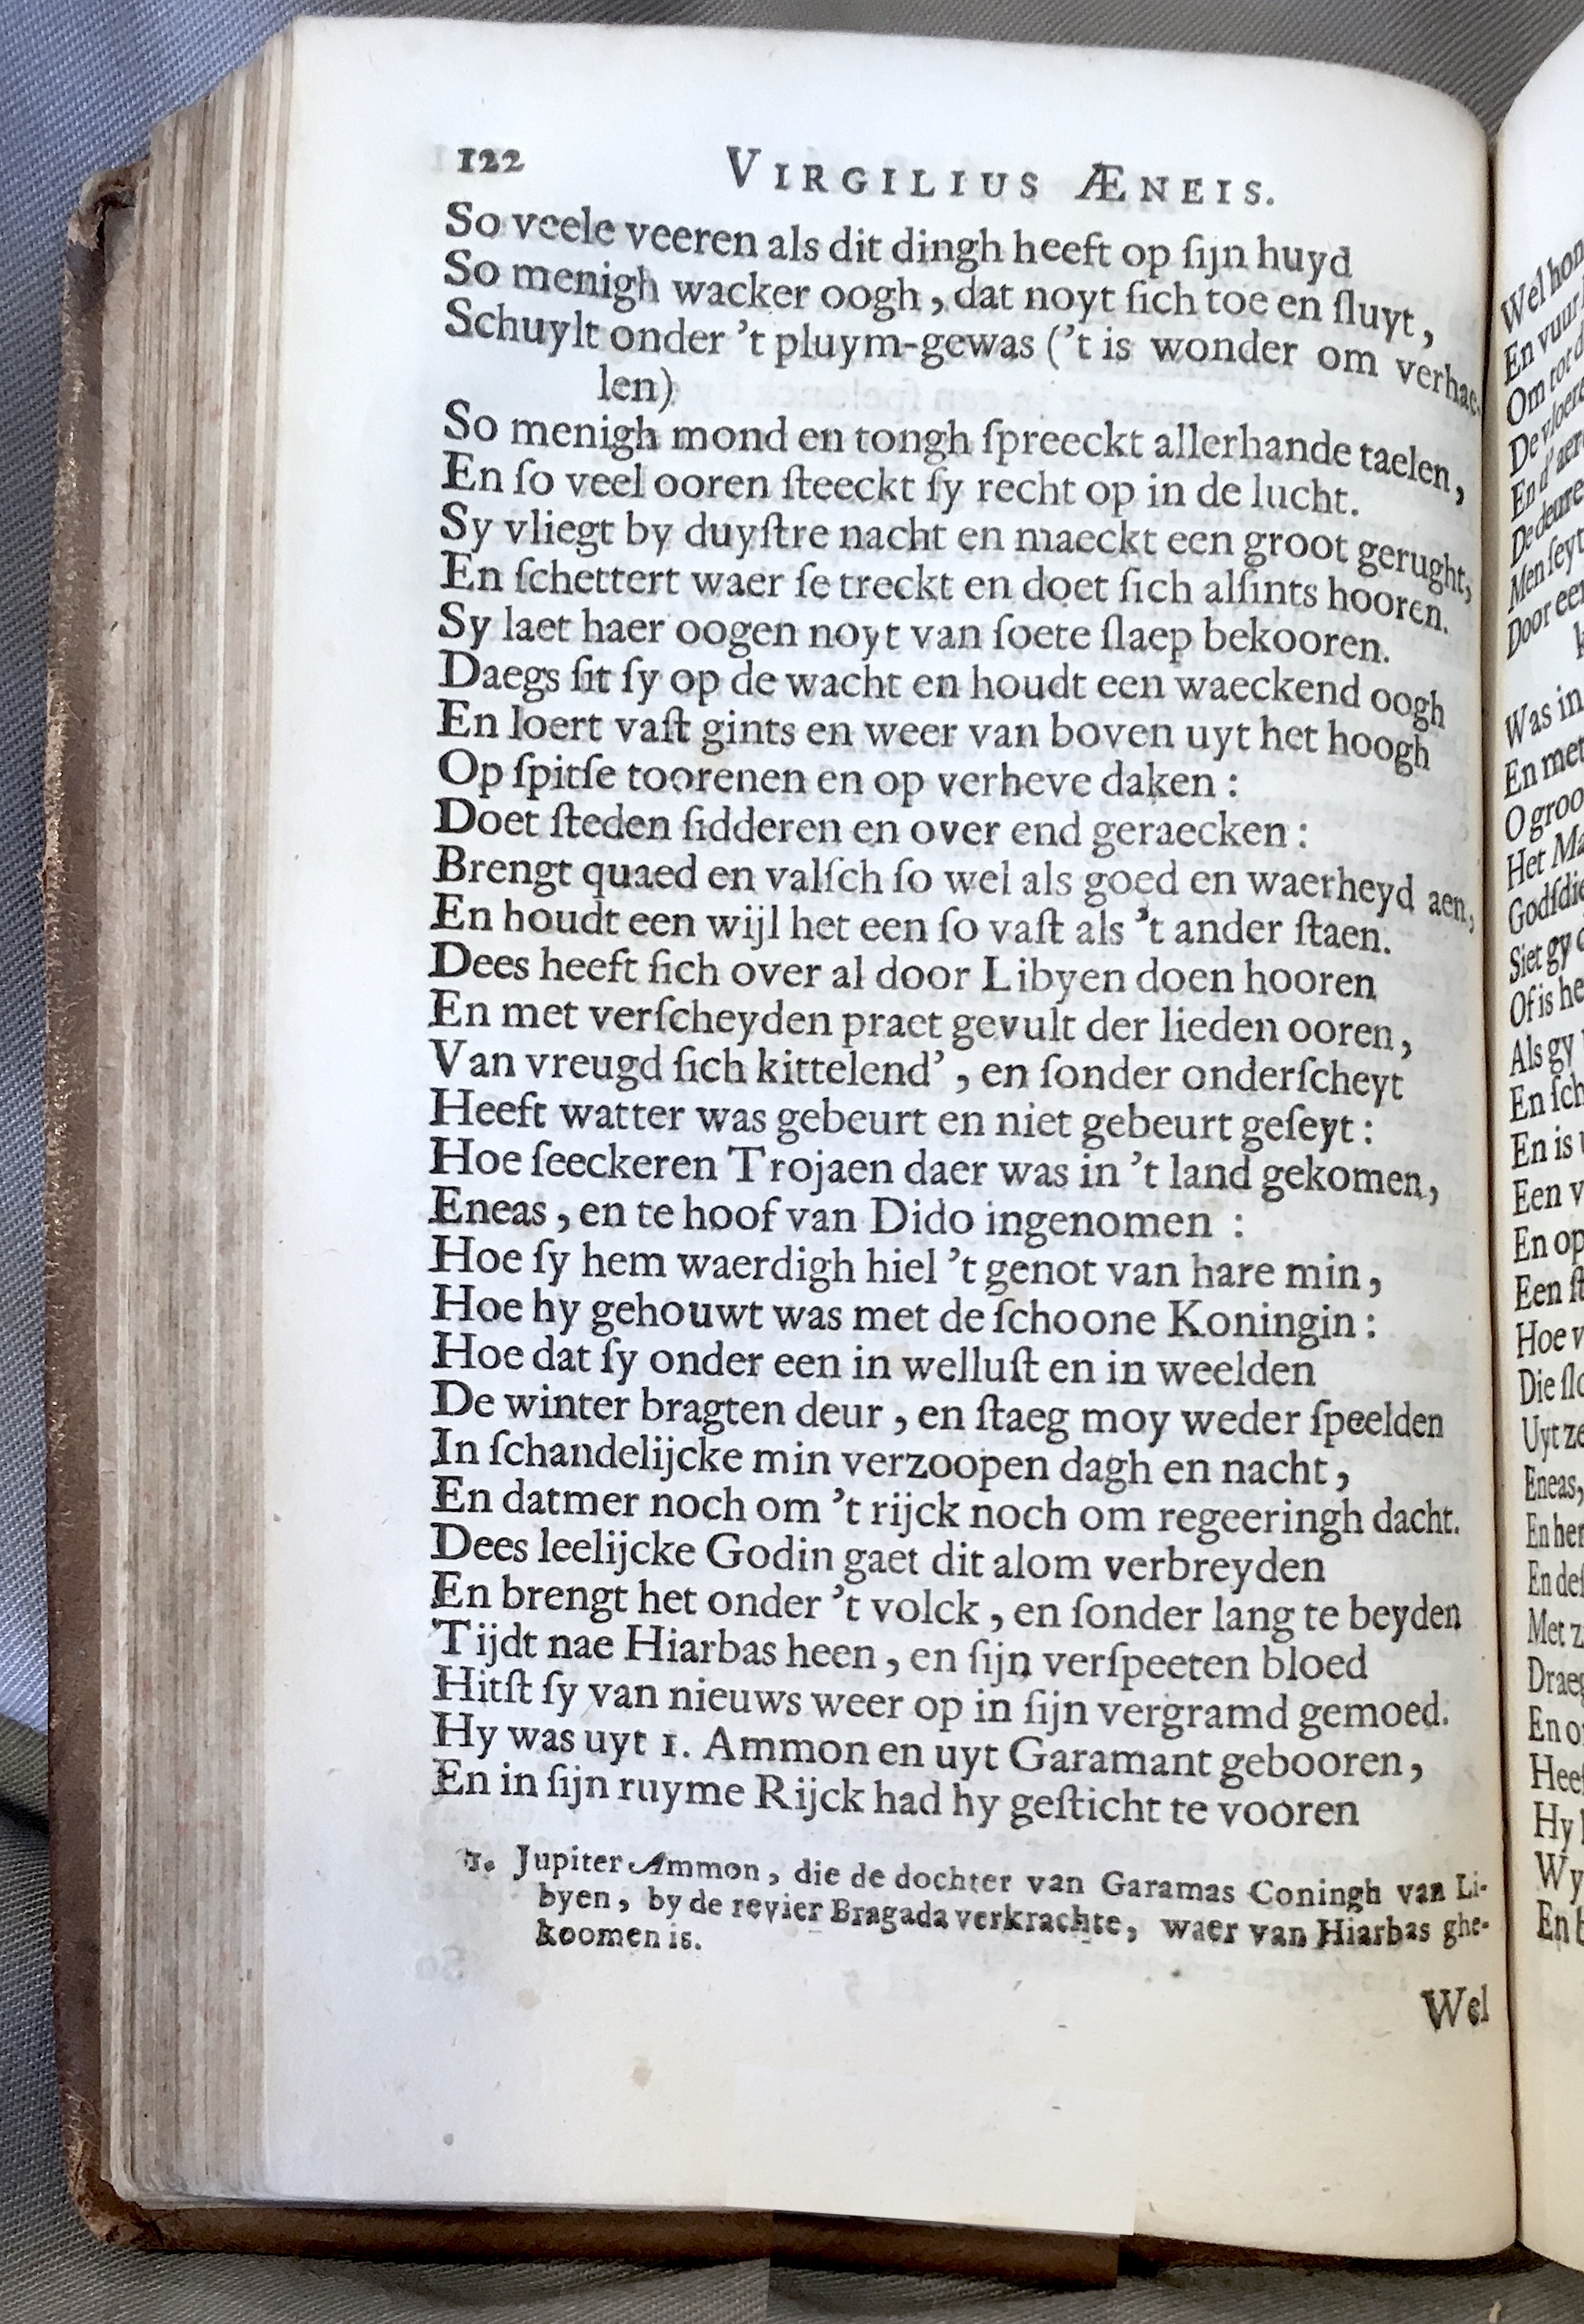 122 VIRGILIUS ÆNEIS.
So veele veeren als dit dingh heeft op ſijn huyd
So menigh wacker oogh, dat noyt ſich toe en ſluyt,
Schuylt onder 't pluym-gewas ('t is wonder om verhae-
len)
So menigh mond en tongh ſpreeckt allerhande taelen,
En ſo veel ooren ſteeckt ſy recht op in de lucht.
Sy vliegt by duyſtre nacht en maeckt een groot gerught,
En ſchettert waer ſe treckt en doet ſich alſints hooren.
Sy laet haer oogen noyt van ſoete ſlaep bekooren.
Daegs ſit ſy op de wacht en houdt een waeckend oogh
En loert vaſt gints en weer van boven uyt het hoogh
Op ſpitſe toorenen en op verheve daken:
Doet ſteden ſidderen en over end geraecken:
Brengt quaed en valſch ſo wel als goed en waerheyd aen,
En houdt een wijl het een ſo vaſt als 't ander ſtaen.
Dees heeft ſich over al door Libyen doen hooren
En met verſcheyden praet gevult der lieden ooren,
Van vreugd ſich kittelend', en ſonder onderſcheyt
Heeft watter was gebeurt en niet gebeurt geſeyt:
Hoe ſeeckeren Trojaen daer was in 't land gekomen,
Eneas, en te hoof van Dido ingenomen:
Hoe ſy hem waerdigh hiel 't genot van hare min,
Hoe hy gehouwt was met de ſchoone Koningin:
Hoe dat ſy onder een in welluſt en in weelden
De winter bragten deur, en ſtaeg moy weder ſpeelden
In ſchandelijcke min verzoopen dagh en nacht,
En datmer noch om 't rijck noch om regeeringh dacht.
Dees leelijcke Godin gaet dit alom verbreyden
En brengt het onder 't volck, en ſonder lang te beyden
Tijdt nae Hiarbas heen, en ſijn verſpeeten bloed
Hitſt ſy van nieuws weer op in ſijn vergramd gemoed.
Hy was uyt 1. Ammon en uyt Garamant gebooren,
En in ſijn ruyme Rijck had hy geſticht te vooren
1. Jupiter Ammon, die de dochter van Garamas Coningh van Li-
byen, by de revier Bragada verkrachte, waer van Hiarbas ghe-
koomen is.
Wel
Wel
En vuur
Om tot
De
En d'
De deure
Men ſeyt
Door een
Was in
En met
O groo
Het
Siet gy
Of is he
Als gy
En ſch
En is
Een v
En op
Een ſt
Hoe v
Die
Uyt ze
Eneas,
En her
En deſ
Met z
Draeg
En o
Heef
Hy
Wy
En